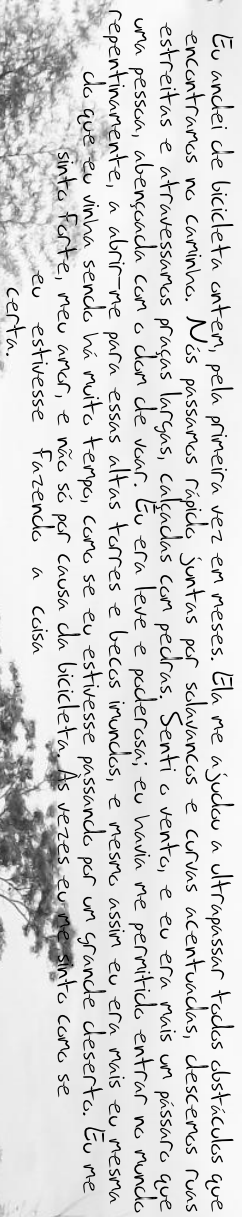 Eu andei de bicicleta ontem, pela primeira vez em meses. Ela me ajudou a ultrapassar todos obstáculos que
encontramos no caminho. Nós passamos rápido juntas por solavancos e curvas acentuadas, descemos ruas
estreitas e atravessamos praças largas, calçadas com pedras. Senti o vento, e eu era mais um pássaro que
uma pessoa, abençoada com o dom de voar. Eu era leve e poderosa; eu havia me permitido entrar no mundo
repentinamente, a abrir-me para essas altas torres e becos imundos, e mesmo assim eu era mais eu mesma
do que eu vinha sendo há muito tempo, como se eu estivesse passando por um grande deserto. Eu me
sinto forte, meu amor, e não só por causa da bicicleta. Às vezes eu me sinto como se
eu estivesse fazendo a coisa
certa.